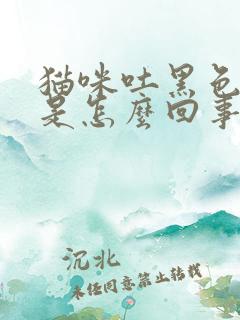 猫咪吐黑色
是怎麼回事
沉北
未经同意禁止转载